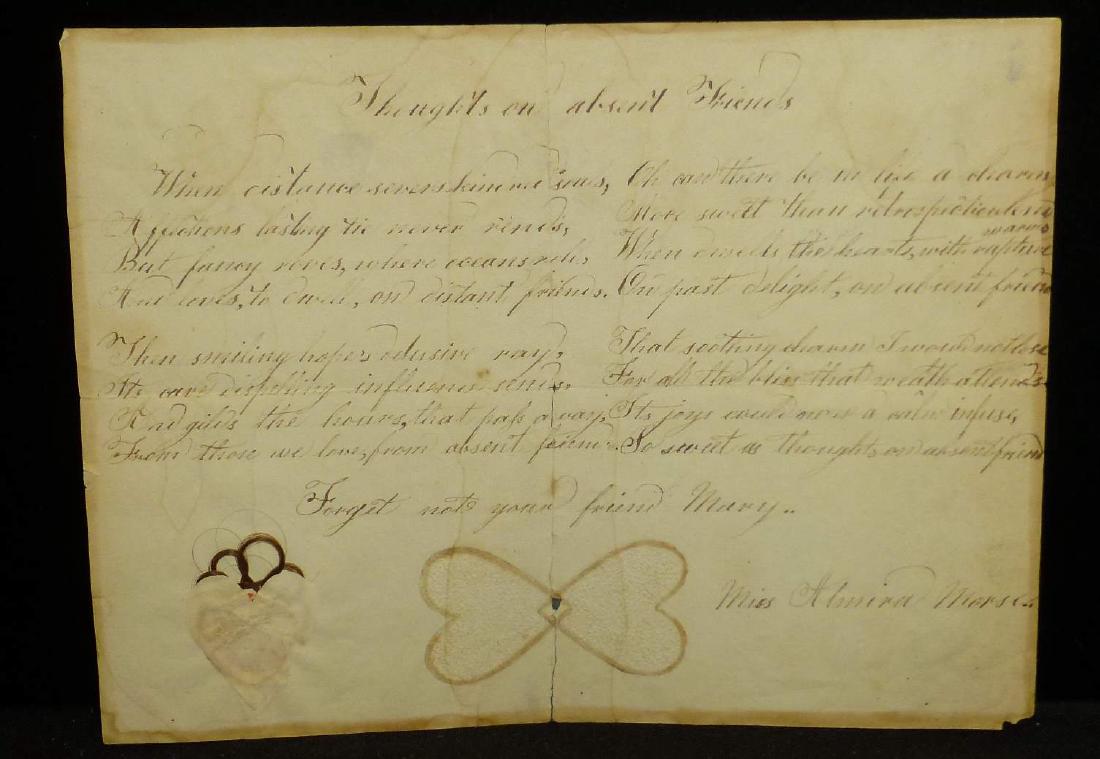 Thoughts on absent Friends
When distance severs kindred souls,
Affections lasting tie never rends,
But fancy roves, where oceans roll,
And loves, to dwell, on distant friends.
Then smiling hopes delusive ray,
Its care dispelling influence sends,
And gilds the hours, that pass away,
From those we love, from absent friends
Oh can there be in life a charm
More sweet than retrospection lend
When dwells the hearts, with rapture warm
On past delight, on absent friend
That soothing charm I would not lose
For all the bliss that wealth attends
Its joys could never a calm infuse,
So sweet as thoughts on absent friend
Forget not your friend Mary..
Miss Almira Morse..